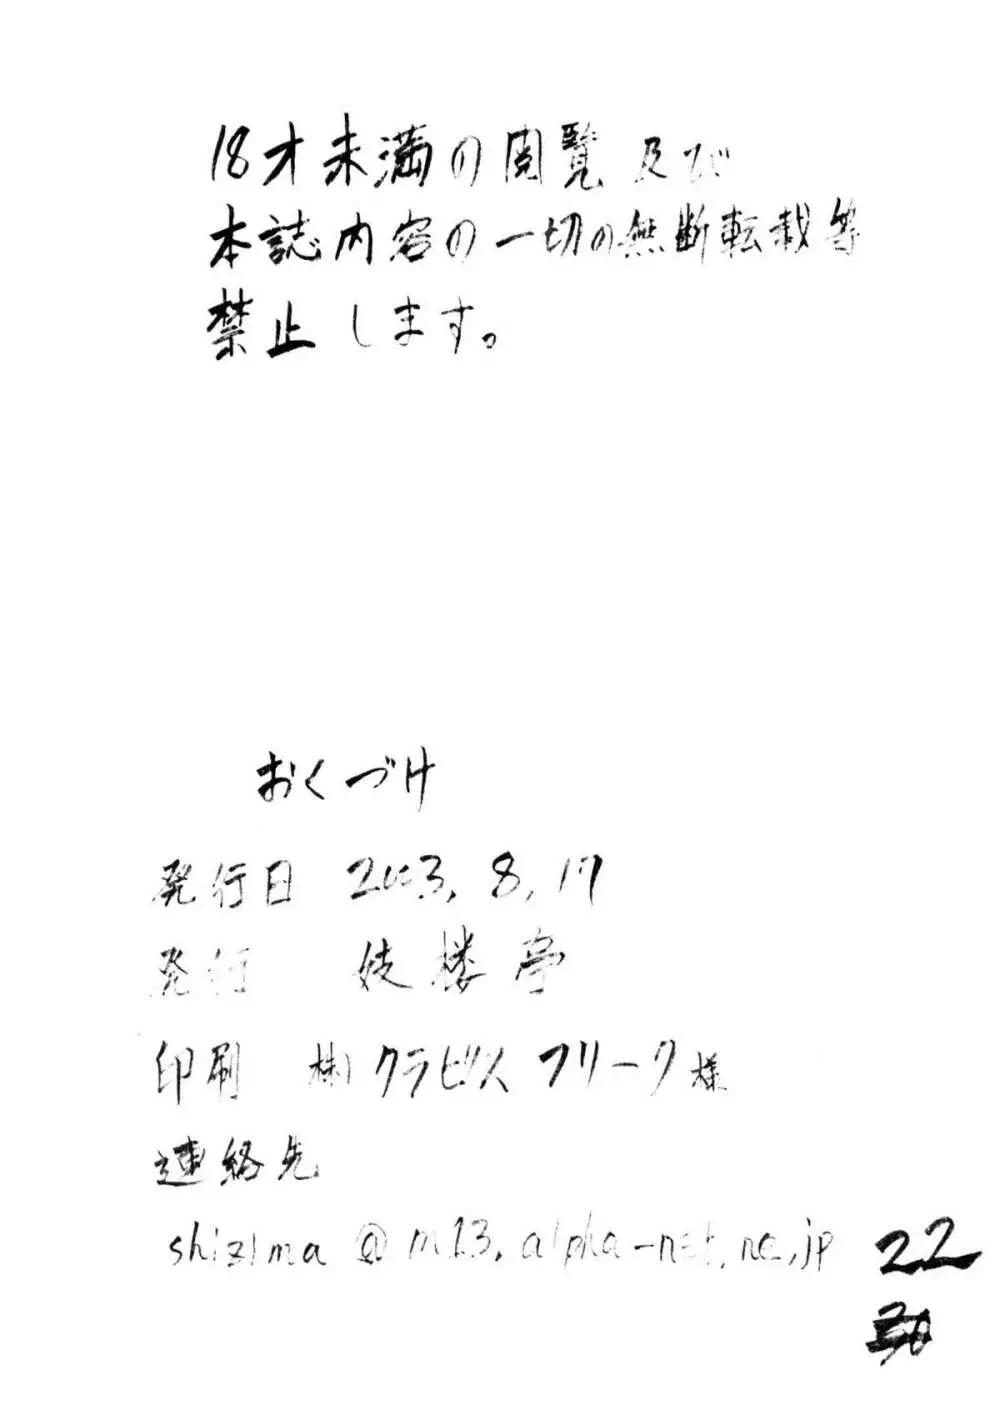 18才未満の閲覧及び
本誌内容の一切の無断転載等
禁止します。
おくづけ
発行日 2003.8.17
発行 妓楼亭
印刷 (株)クラビズフリーク様
連絡先
shizima@m13.alpha-net.ne.jp
22
30